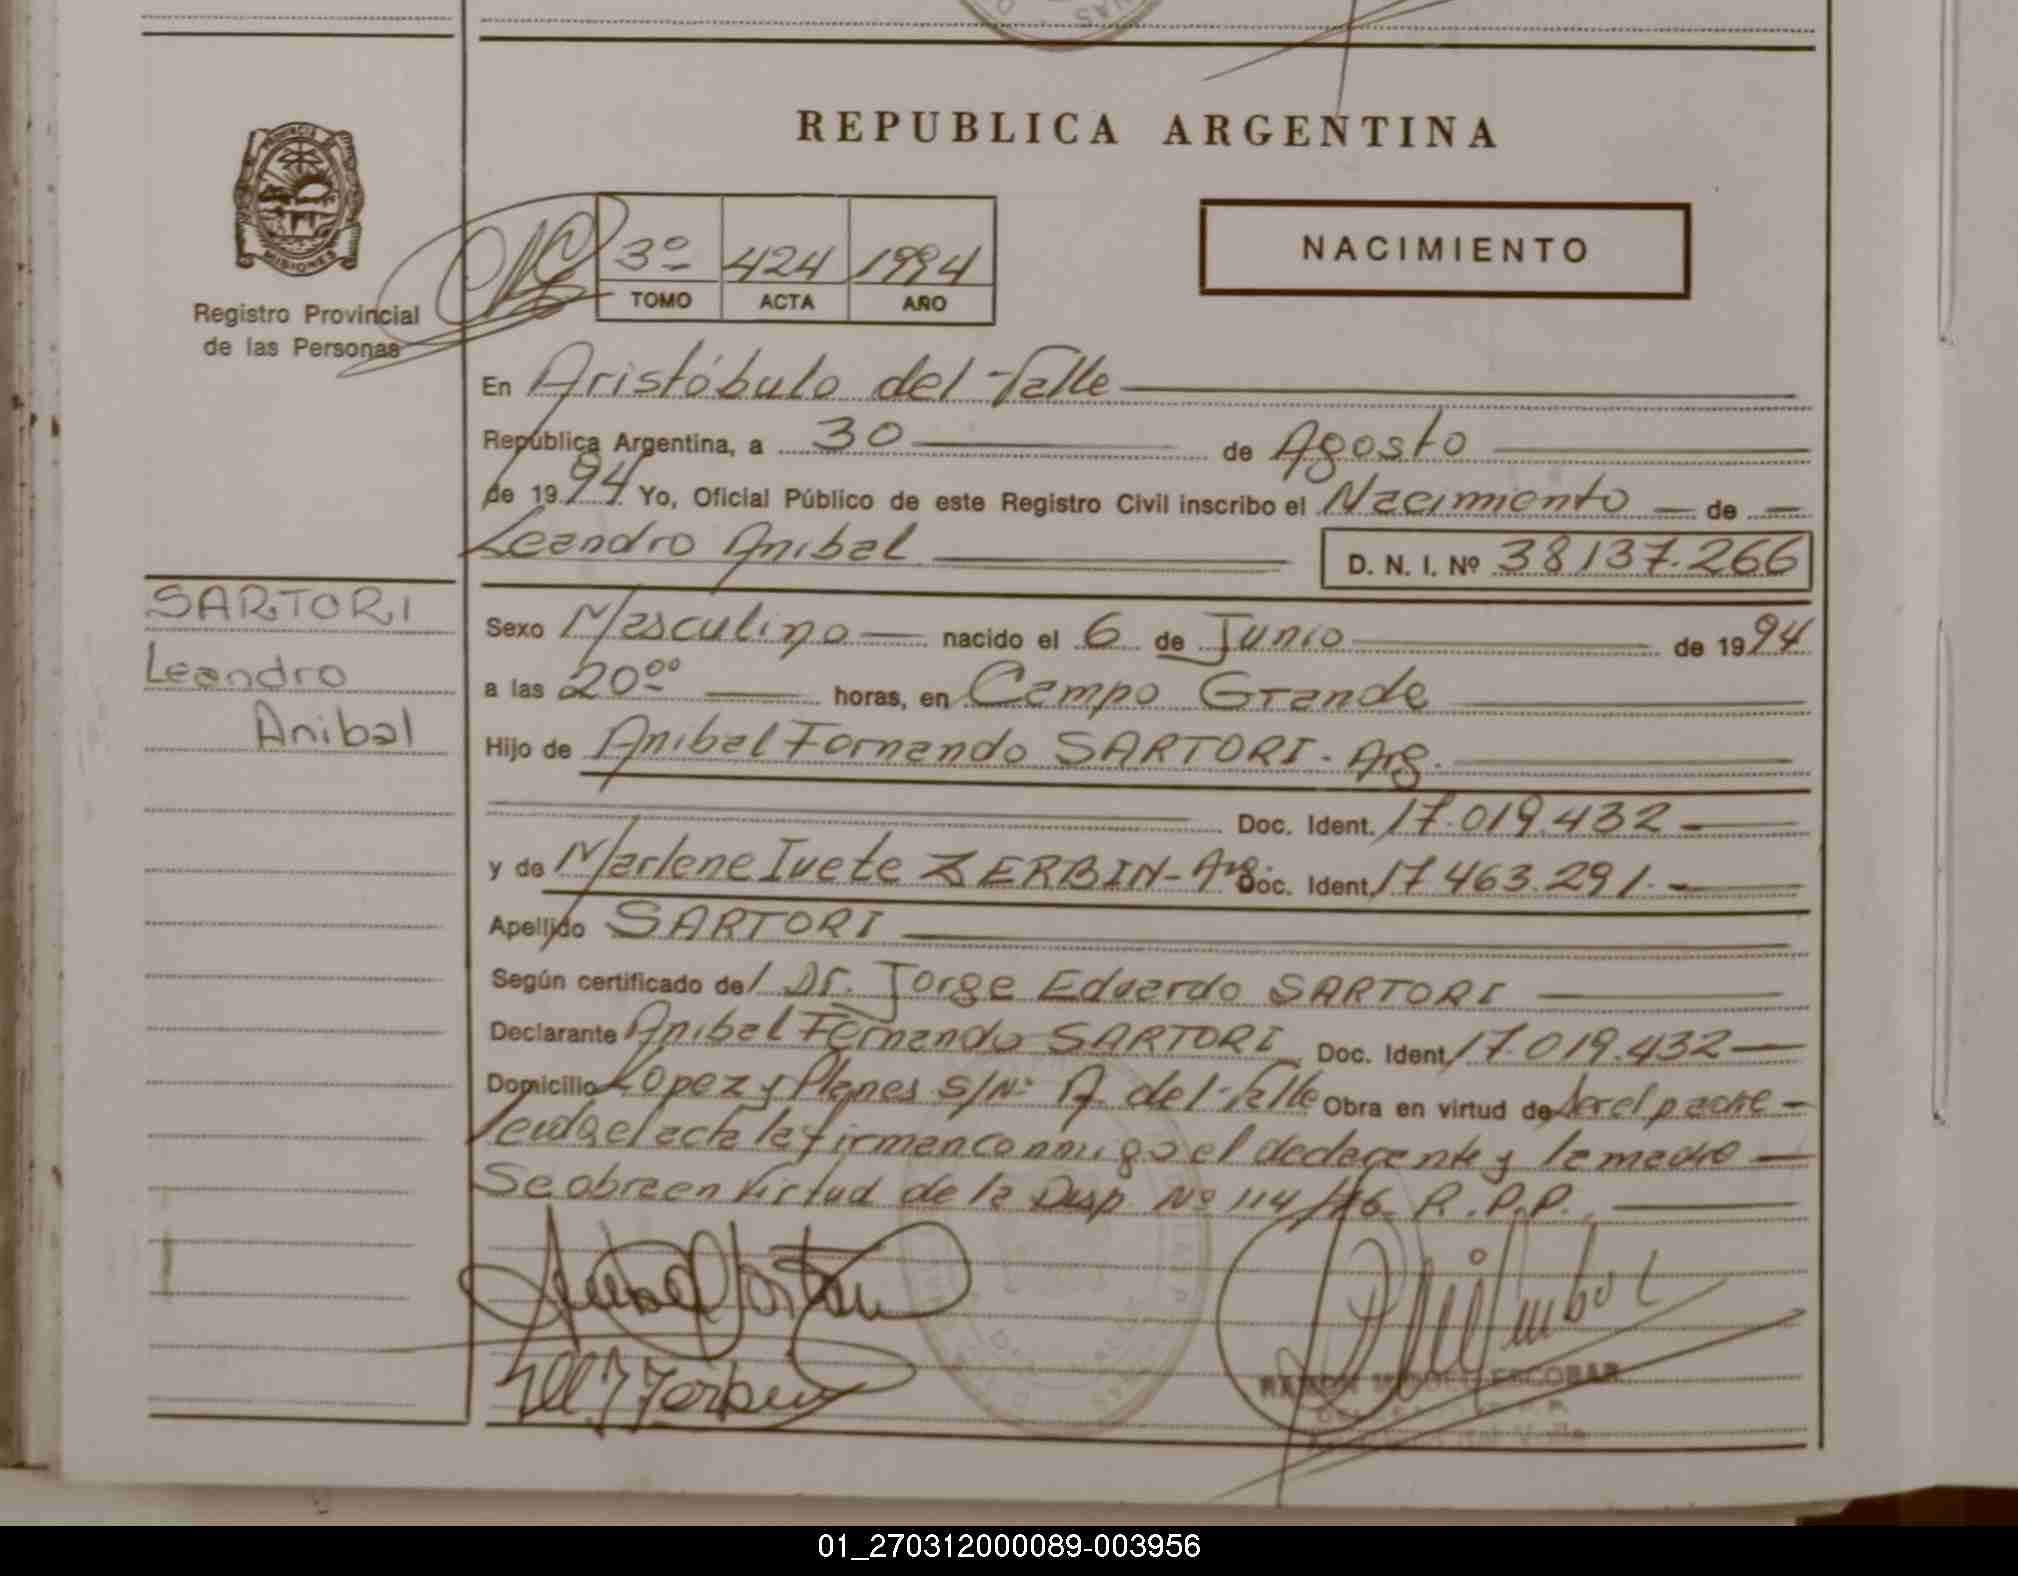 REPUBLICA ARGENTINA
PROVINCIA DE
MISIONES
Registro Provincial
de las Personas
3º 424 1994
TOMO ACTA AÑO
NACIMIENTO
En Aristóbulo del Valle
República Argentina, a 30 de Agosto
de 1994 Yo, Oficial Público de este Registro Civil inscribo el Nacimiento de
Leandro Anibal D. N. I. Nº 38137.266
SARTORI
Leandro
Anibal
Sexo Masculino nacido el 6 de Junio de 1994
a las 20ºº horas, en Campo Grande
Hijo de Anibal Fernando SARTORI - Arg.
Doc. Ident. 17.019.432
y de Marlene Ivete ZERBIN - Arg. Doc. Ident. 17463.291.
Apellido SARTORI
Según certificado del Dr. Jorge Eduardo SARTORI
Declarante Anibal Fernando SARTORI Doc. Ident. 17.019.432
Domicilio Lopez y Planes S/Nº A. del Valle Obra en virtud de ser el padre
Leida el acta la firman conmigo el declarante y la madre
Se obra en virtud de la Disp. Nº 114/76 R.P.P.
RAMON MIGUEL ESCOBAR
01_270312000089-003956